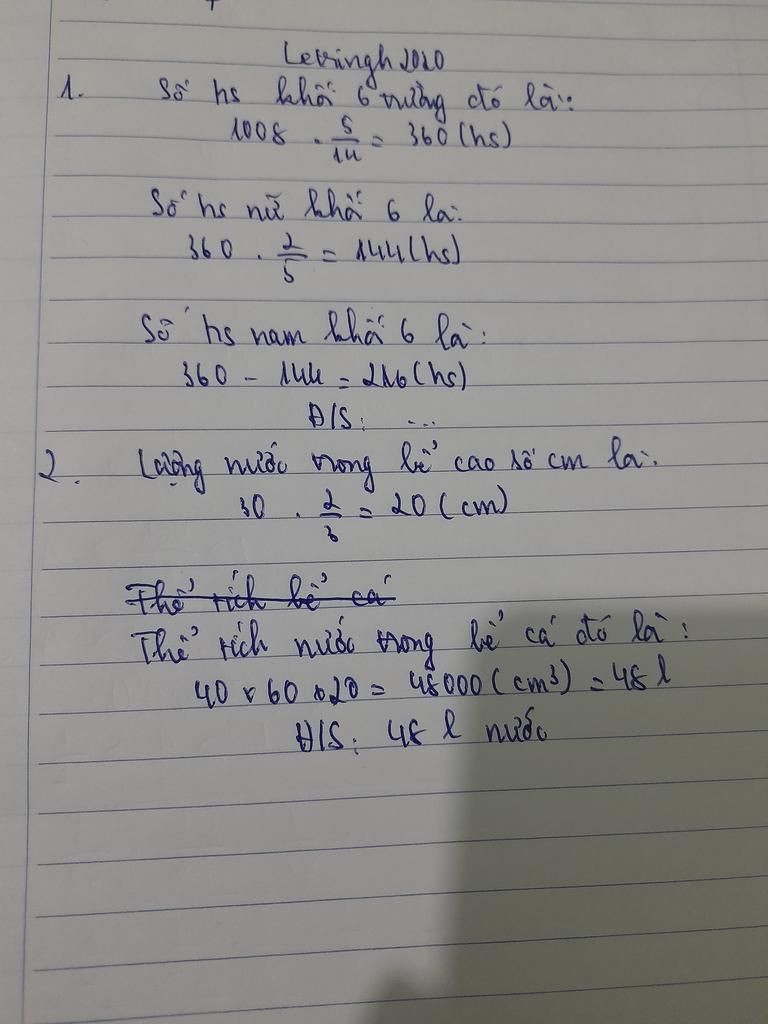 Levringh2020
1. Số hs khối 6 trường đó là:
1008 . 5/14 = 360 (hs)
Số hs nữ khối 6 là:
360 . 2/5 = 144 (hs)
Số hs nam khối 6 là:
360 - 144 = 216 (hs)
Đ/S: ...
2. Lượng nước trong bể cao số cm là:
30 . 2/3 = 20 (cm)
Thể tích bể cá
Thể tích nước trong bể cá đó là:
40 x 60 x 20 = 48000 (cm³) = 48 l
Đ/S: 48 l nước